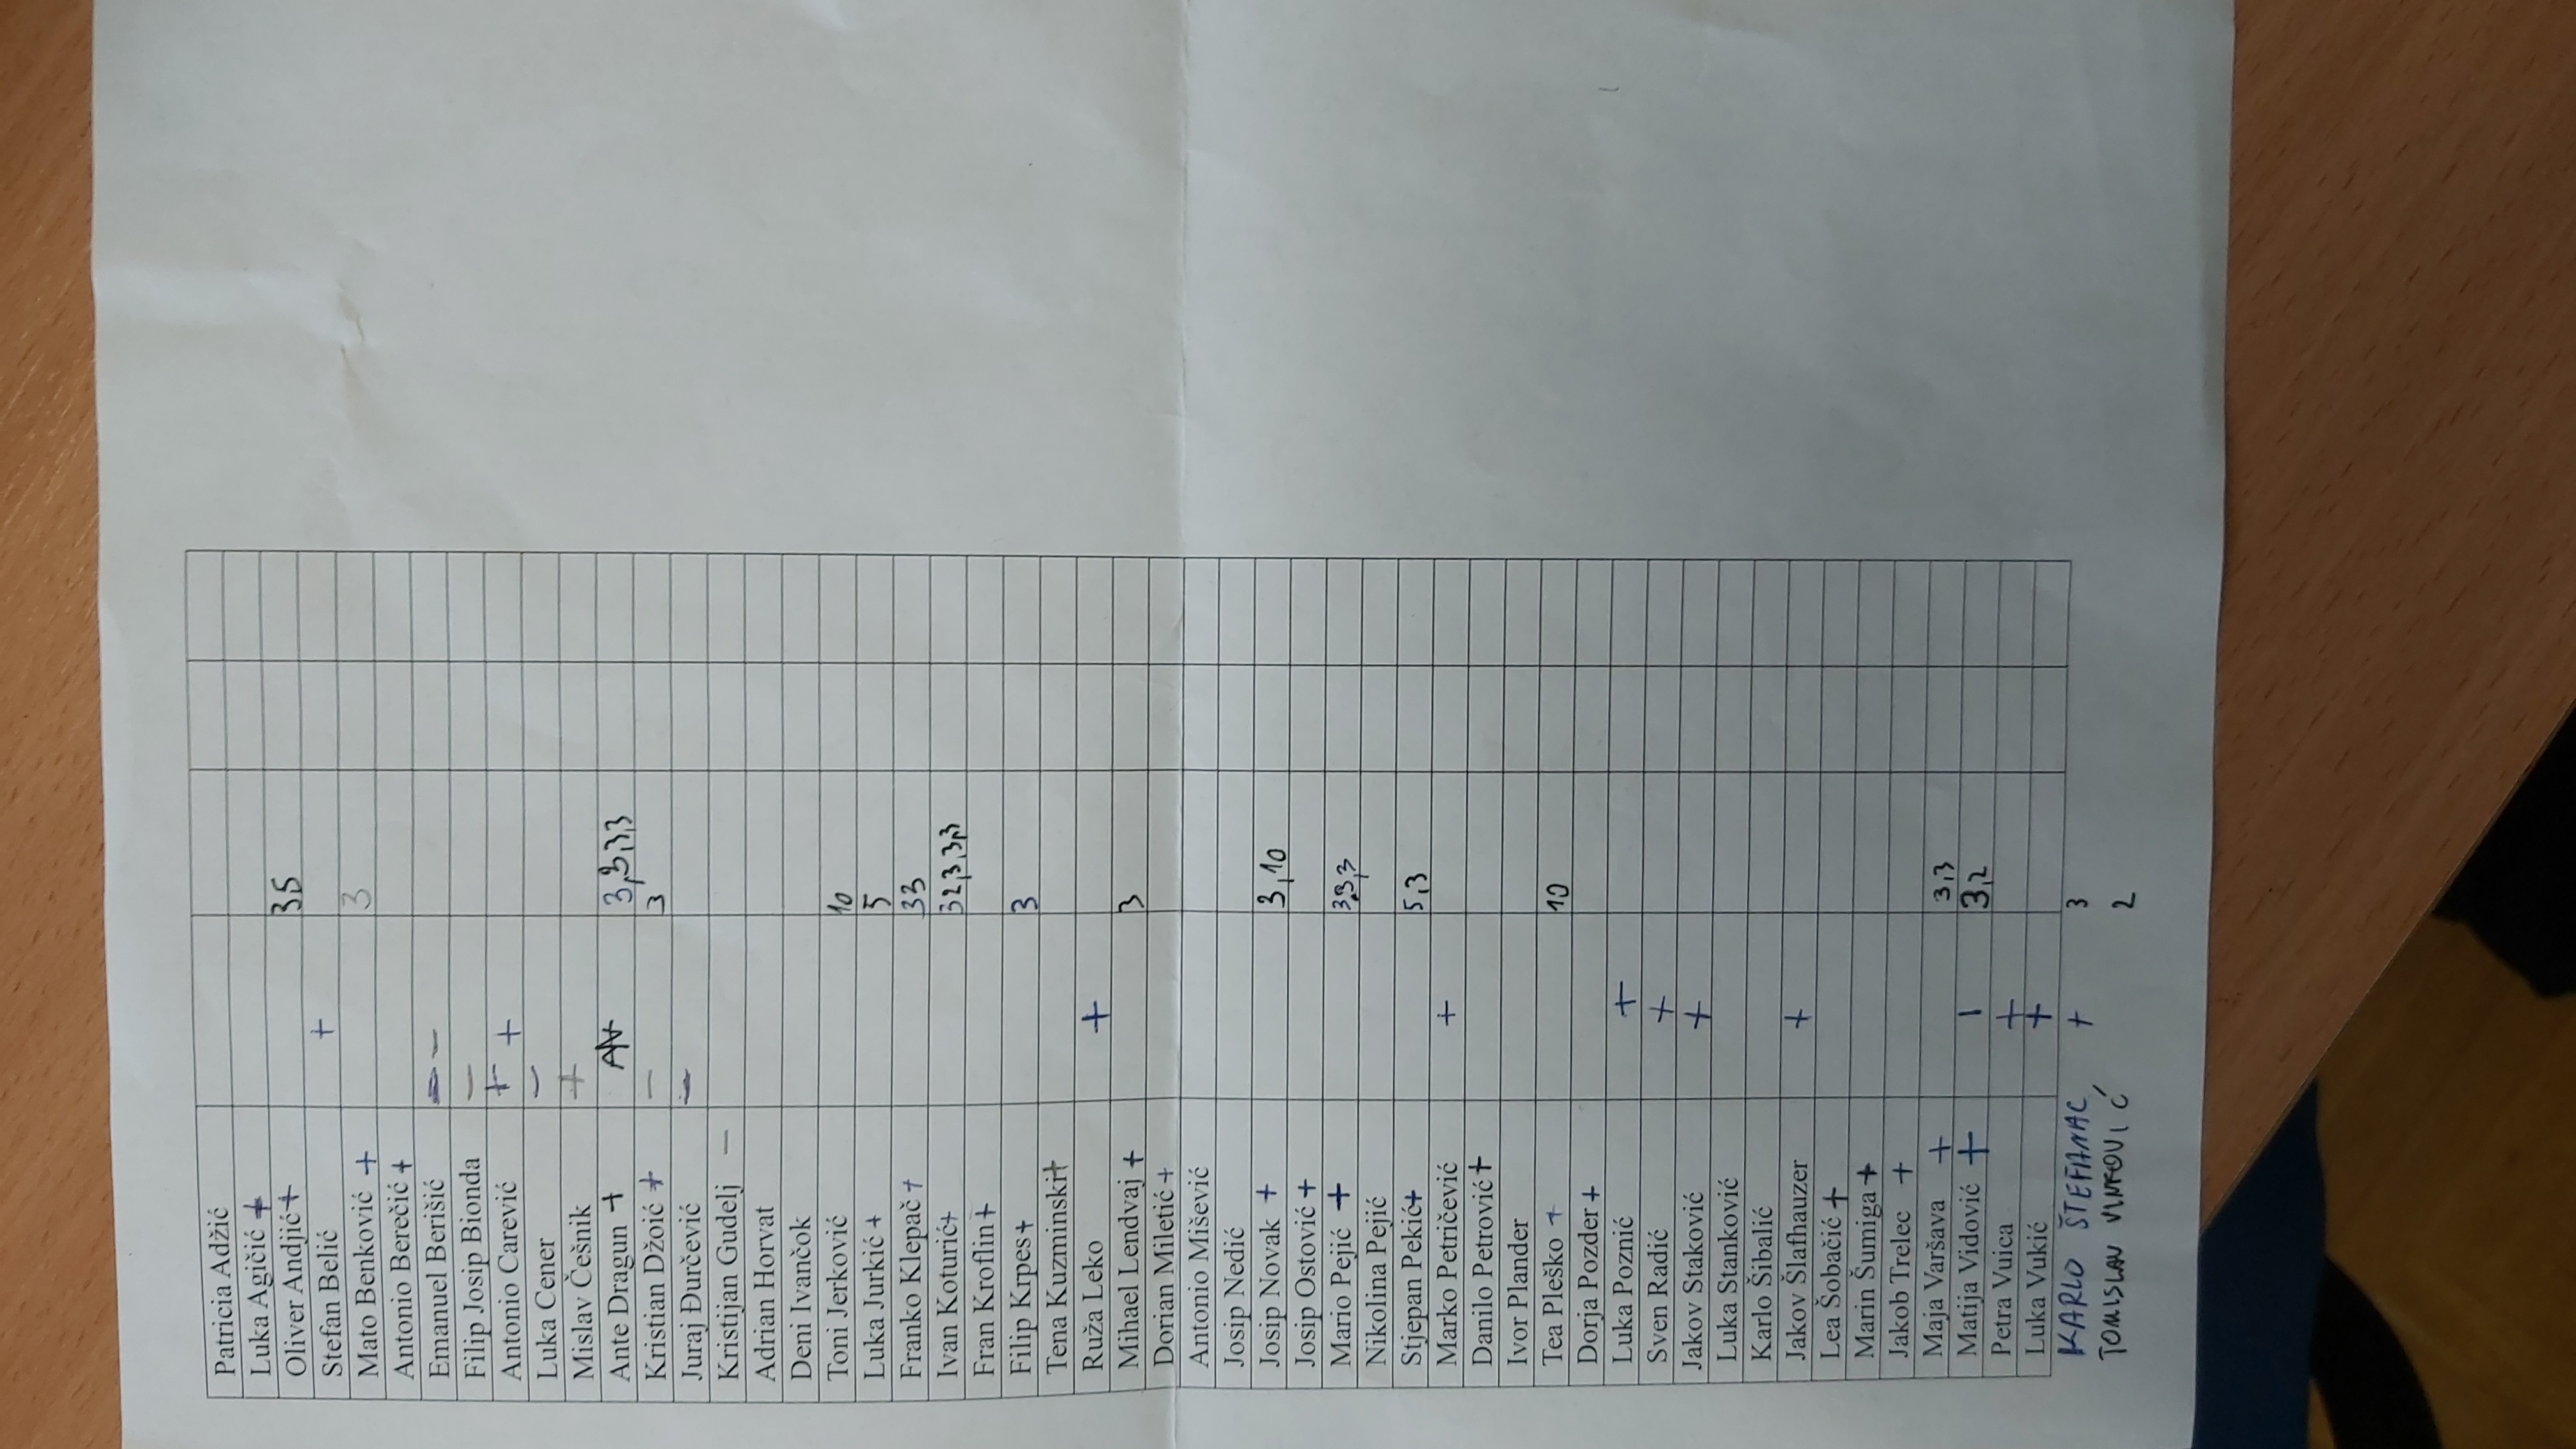 Patricia Adžić
Luka Agičić +
Oliver Andjić + 35
Stefan Belić +
Mato Benković + 3
Antonio Berečić +
Emanuel Berišić — —
Filip Josip Bionda —
Antonio Carević + +
Luka Cener —
Mislav Češnik +
Ante Dragun + 3,3,3,3
Kristian Džoić + — 3
Juraj Đurčević —
Kristijan Gudelj —
Adrian Horvat
Deni Ivančok
Toni Jerković 10
Luka Jurkić + 5
Franko Klepač + 33
Ivan Koturić + 32,3,3,3
Fran Kroflin +
Filip Krpes + 3
Tena Kuzminski +
Ruža Leko +
Mihael Lendvaj + 3
Dorian Miletić +
Antonio Mišević
Josip Nedić
Josip Novak + 3,10
Josip Ostović +
Mario Pejić + 3,3,3
Nikolina Pejić
Stjepan Pekić + 5,3
Marko Petričević +
Danilo Petrović +
Ivor Plander
Tea Pleško + 10
Dorja Pozder +
Luka Poznić +
Sven Radić +
Jakov Staković +
Luka Stanković
Karlo Šibalić
Jakov Šlafhauzer +
Lea Šobačić +
Marin Šumiga +
Jakob Trelec +
Maja Varšava + 3,3
Matija Vidović + I 3,2
Petra Vuica +
Luka Vukić +
KARLO ŠTEFANAC + 3
TOMISLAV VINKOVIĆ 2